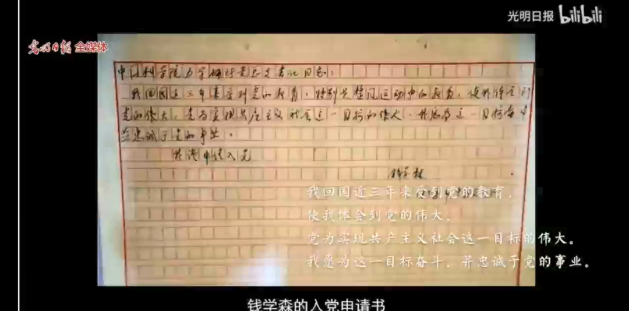 光明日报 bilibili
光明日报 全媒体
中国科学院力学研究所总支书记同志：
我回国近三年来受到党的教育，特别是整风运动中的教育，使我体会到
党的伟大。党为实现共产主义社会这一目标的伟大。我愿为这一目标奋斗
并忠诚于党的事业。
钱学森
我回国近三年来受到党的教育，
使我体会到党的伟大。
党为实现共产主义社会这一目标的伟大。
我愿为这一目标奋斗，并忠诚于党的事业。
钱学森的入党申请书